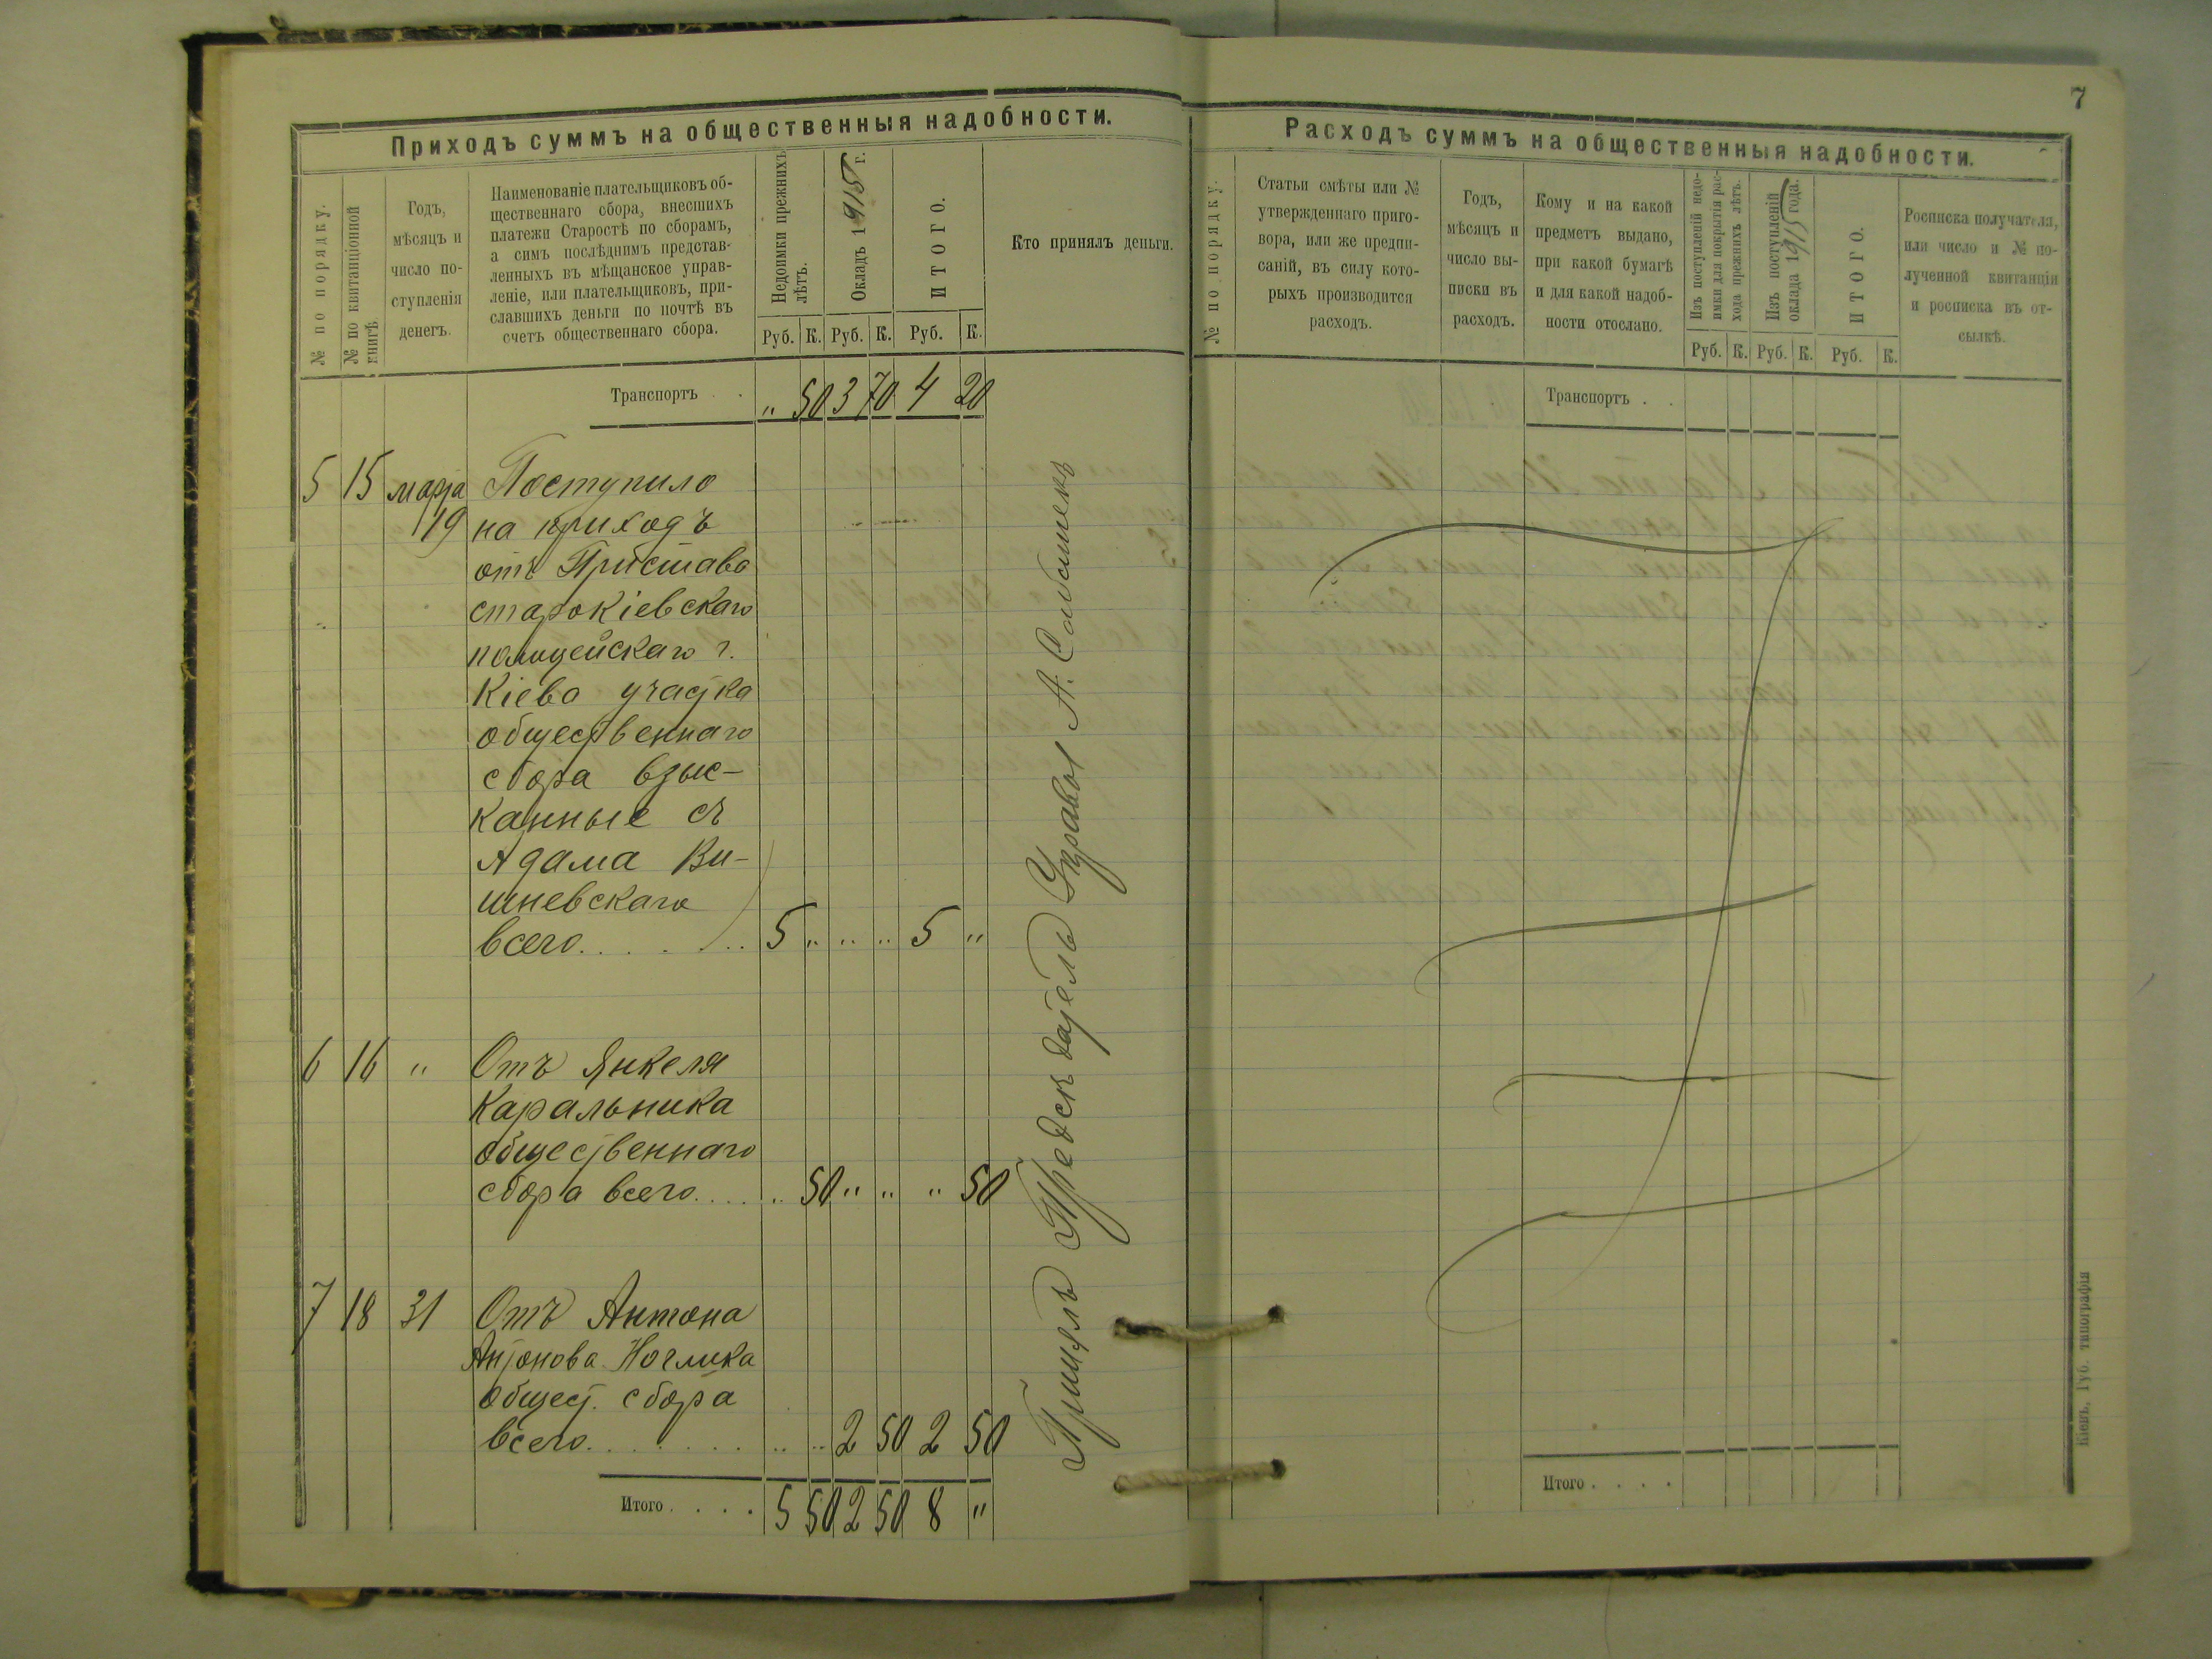 Приходъ суммъ на общественныя надобности.
№ по порядку.
№ по квитанціонной книгѣ
Годъ,
мѣсяцъ и
число по-
ступленія
денегъ.
Наименованіе плательщиковъ об-
щественнаго сбора, внесшихъ
платежи Старостѣ по сборамъ,
а симъ послѣднимъ представ-
ленныхъ въ мѣщанское управ-
леніе, или плательщиковъ, при-
славшихъ деньги по почтѣ въ
счетъ общественнаго сбора.
Недоимки прежнихъ
лѣтъ.
Окладъ 1915 г.
ИТОГО.
Кто принялъ деньги.
Руб. К. Руб. К. Руб. К.
Транспортъ . . „ 50 3 70 4 20
5 15 марта Поступило
19 на приходъ
отъ Пристава
старокіевскаго
полицейскаго г.
Кіева участка
общественнаго
сбора взыс-
канные съ
Адама Ви-
шневскаго
всего. . . . . . 5 „ „ „ 5 „
6 16 „ Отъ Янкеля
Каральника
общественнаго
сбора всего. . . . „ 50 „ „ „ 50
7 18 31 Отъ Антона
Антонова
общест. сбора
всего. . . . . . . „ „ 2 50 2 50
Итого . . . . 5 50 2 50 8 „
Принялъ Председатель Управы А.
7
Расходъ суммъ на общественныя надобности.
№ по порядку.
Статьи смѣты или №
утвержденнаго приго-
вора, или же предпи-
саній, въ силу кото-
рыхъ производится
расходъ.
Годъ,
мѣсяцъ и
число вы-
писки въ
расходъ.
Кому и на какой
предметъ выдано,
при какой бумагѣ
и для какой надоб-
ности отослано.
Изъ поступленій недо-
имки для покрытія рас-
хода прежнихъ лѣтъ.
Изъ поступленій
оклада 1915 года.
ИТОГО.
Росписка получателя,
или число и № по-
лученной квитанціи
и росписка въ от-
сылкѣ.
Руб. К. Руб. К. Руб. К.
Транспортъ . .
Итого . . . .
Кіевъ, Губ. типографія